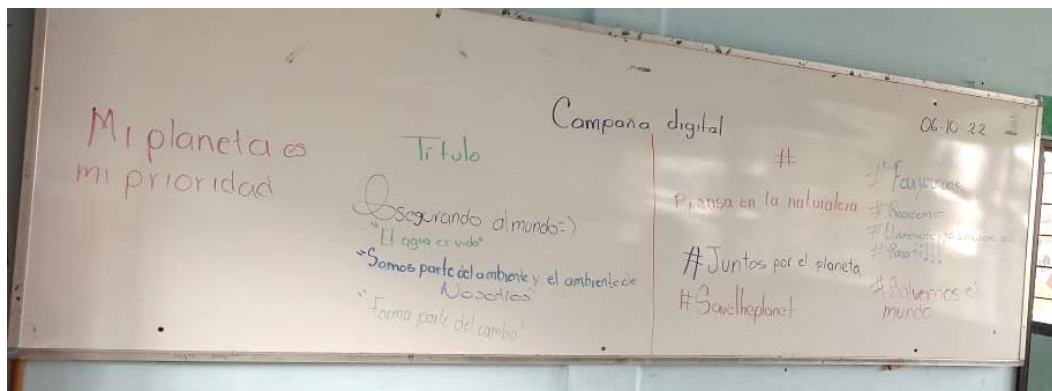 Campaña digital
06-10-22
Mi planeta es
mi prioridad
Título
Asegurando al mundo=)
"El agua es vida"
"Somos parte del ambiente y el ambiente de
Nosotros"
"Forma parte del cambio"
#
Piensa en la naturaleza
#Juntos por el planeta
#Savetheplanet
#Para ti!!!
#Salvemos el
mundo